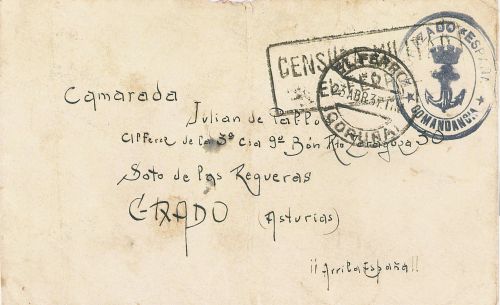 CENSURA MI
EL FERROL
23 ABR 37
CORUÑA
ESPAÑA
COMANDANCIA
Camarada
Julian de Pablo
de la 3ª Cia 9º Bón Rto Zaragoza 30
Soto de las Regueras
GRADO (Asturias)
¡¡Arriba España!!